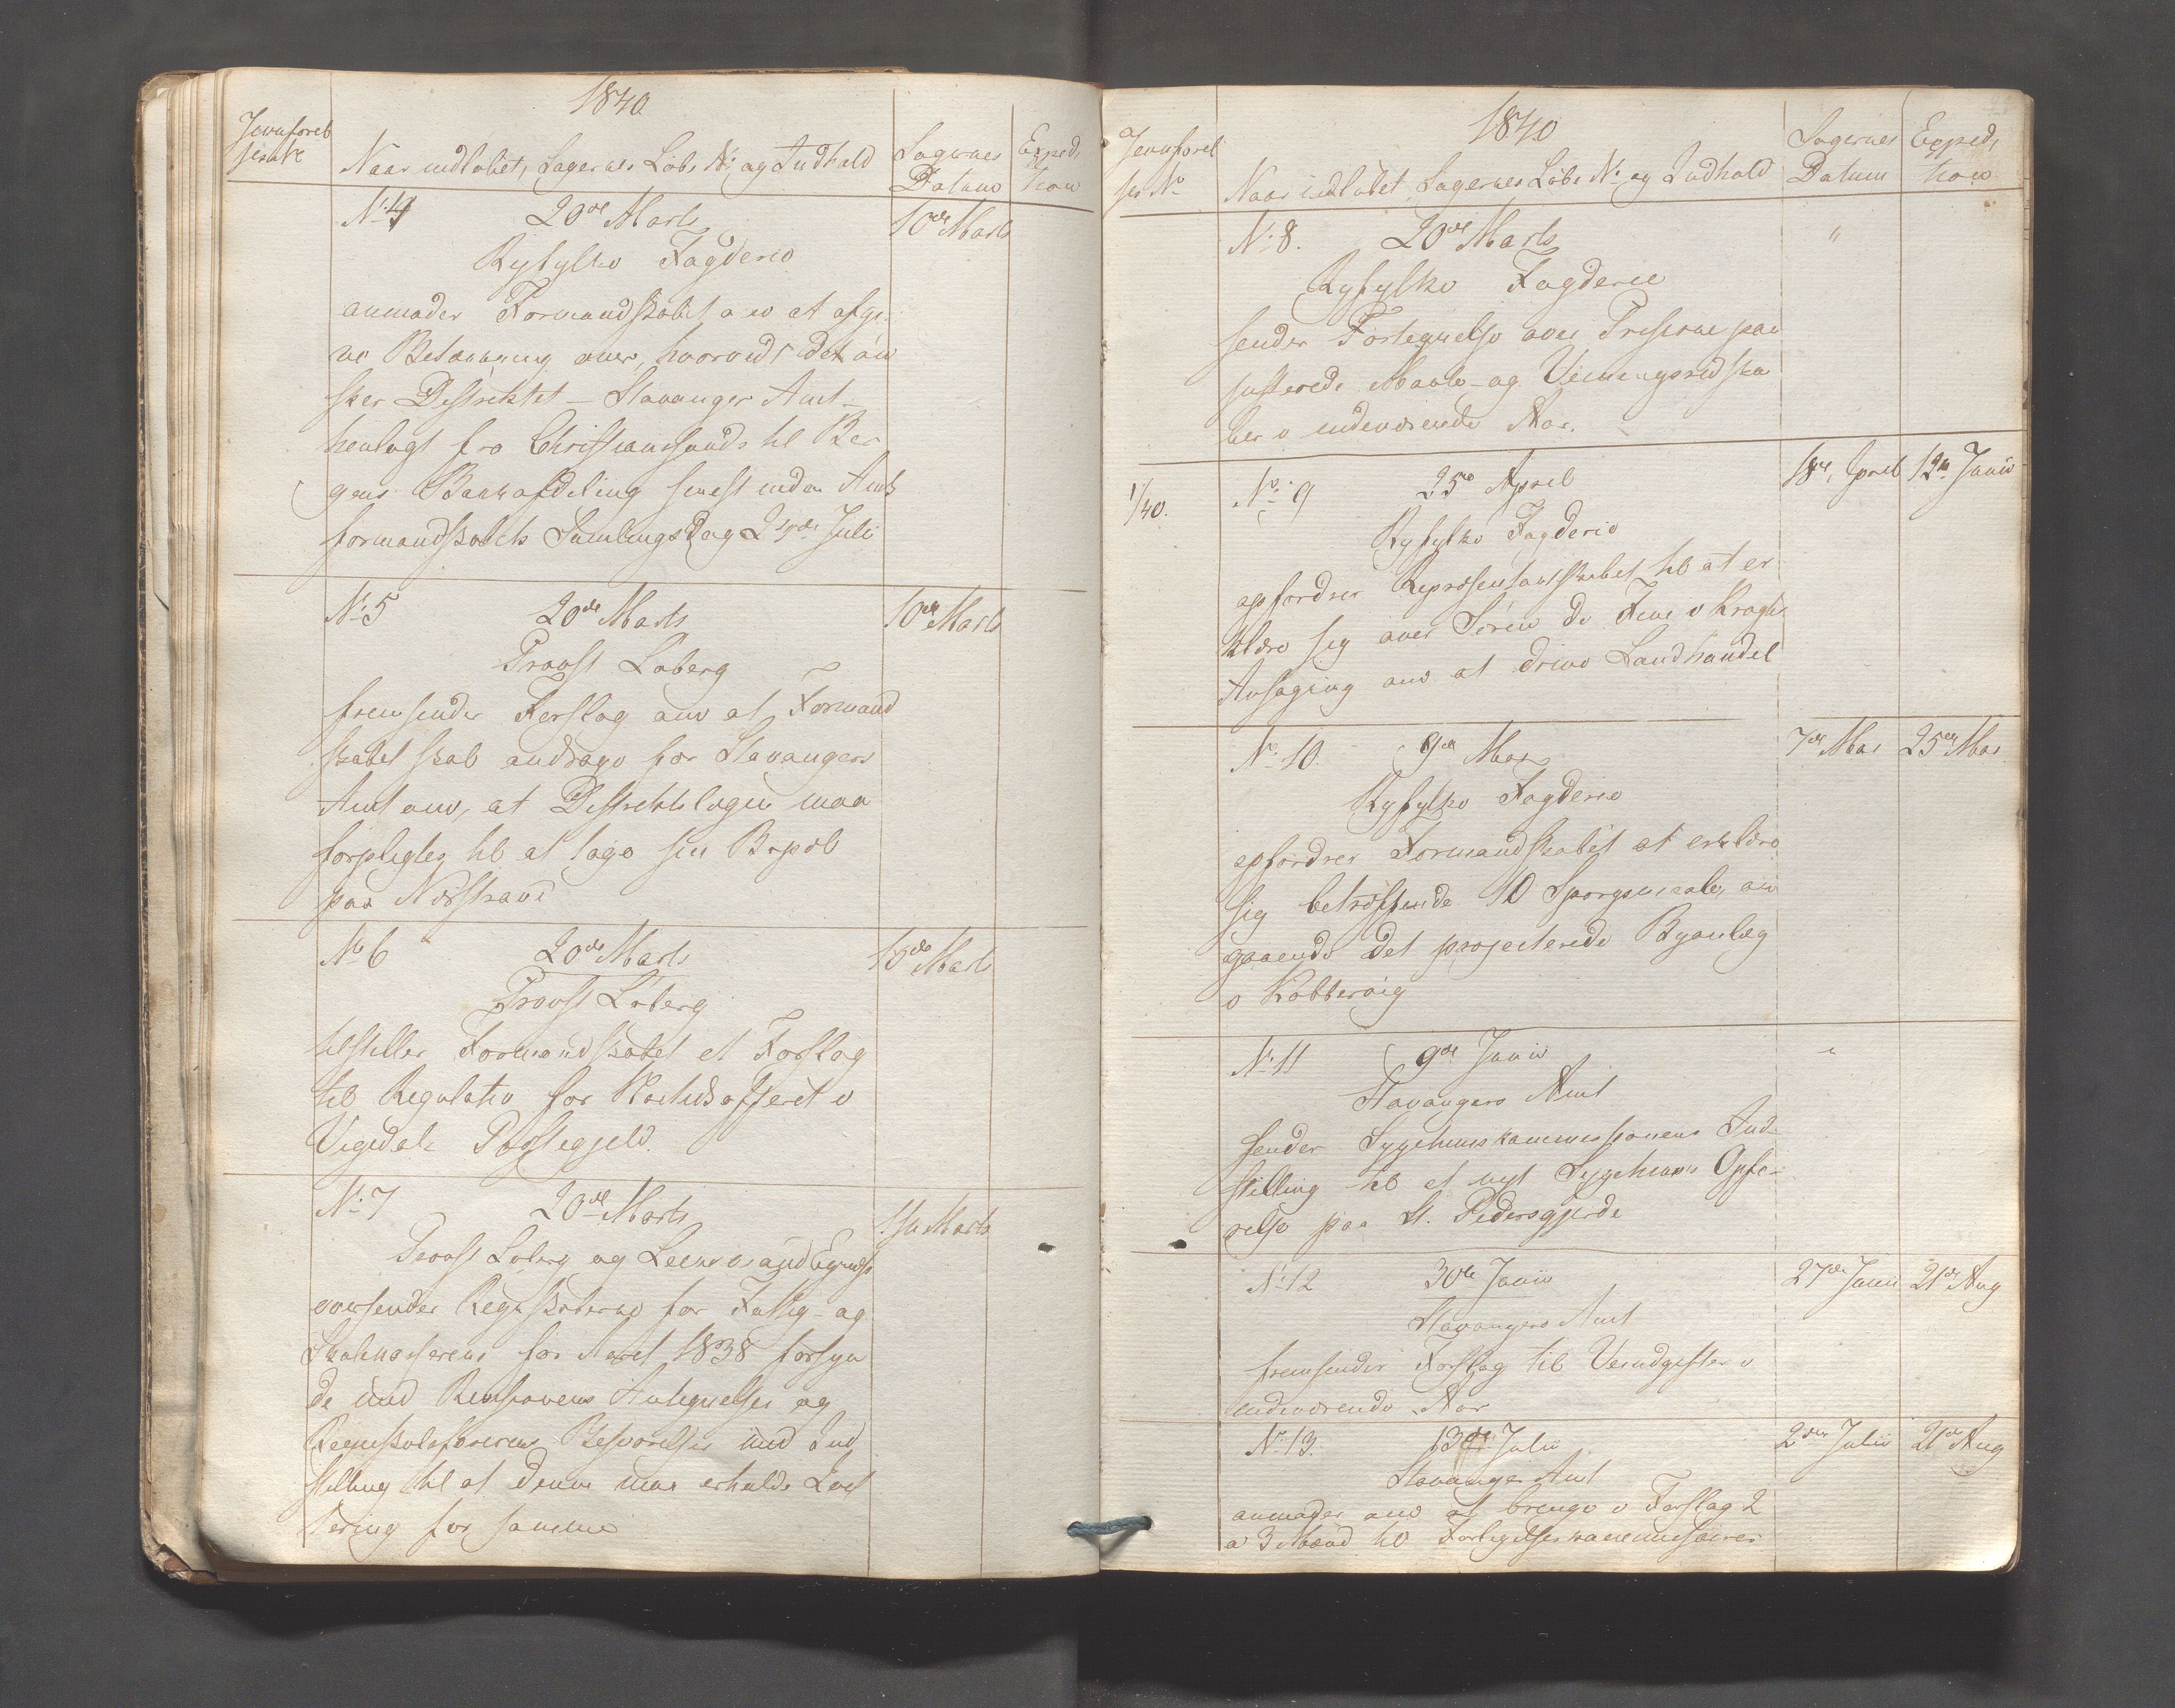 1840
Jevnførel
ses Nr
Naar indløbet, Sagernes Løbe Nr og Indhold
Sagernes
Datum
Exped,
tion
No 4 20de Marts 10de Marts
Ryfylke Fogderie
anmoder Formandskabet om at afgi
ve Betænkning over, hvorvidt det øn
sker Distriktet - Stavanger Amt -
henlagt fra Christianssands til Ber
gens Bankafdeling senest inden Amts
formandskabets Samlingsdag Juli
No 5 20de Marts 10de Marts
Provst Løberg
fremsender Forslag om at Formand
skabet skal andrage for Stavangers
Amt om, at Distriktslægen maa
forpligtes til at tage sin Bopæl
paa Nærstrand
No 6 20de Marts 15de Marts
Provst Løberg
tilstiller Formandskabet et Forslag
til Regulativ for Høitidsofferet i
Vigedals Præstegjeld.
No 7 20de Marts Marts
Provst Løberg og Leensmand
oversender Regnskaberne for Fattig- og
Skolekasserne for Aaret 1838 forsyn
de med Revisionens Antegnelser og
Regnskabsførerens Besvarelser med Ind
stilling til at denne maa erholde Qvit
tering for samme
1840
Jevnførel
ses No
Naar indløbet, Sagernes Løbe No og Indhold
Sagernes
Datum
Exped,
tion
No 8. 20de Marts "
Ryfylke Fogderie
sender Fortegnelse over Priserne paa
justerede Maale- og Veiningsredska
ber i indeværende Aar.
1/40. No 9 25de April 18de April 12te Junii
Ryfylke Fogderie
opfordrer Repræsentantskabet til at er
klære sig over Søren de Fine i Krages
Ansøgning om at drive Landhandel
No 10. 9de Mai 7de Mai 25de Mai
Ryfylke Fogderie
opfordrer Formandskabet at erklære
sig betræffende 10 Spørgsmaale, an
gaaende det projecterede Byanlæg
i Kobbervig
No 11 9de Junii "
Stavangers Amt
sender Sygehuuskommissionens Ind
stilling til et nyt Sygehuus Opfø-
relse paa St. Pedersgjerde
No 12 30te Junii 27de Junii 21de Aug
Stavangers Amt
fremsender Forslag til Veiudgifter i
indeværende Aar
No 13. 13de Julii 2den Julii 21de Aug
Stavanger Amt
anmoder om at bringe i Forslag 2
a 3 Mænd til Forligelseskommissairer